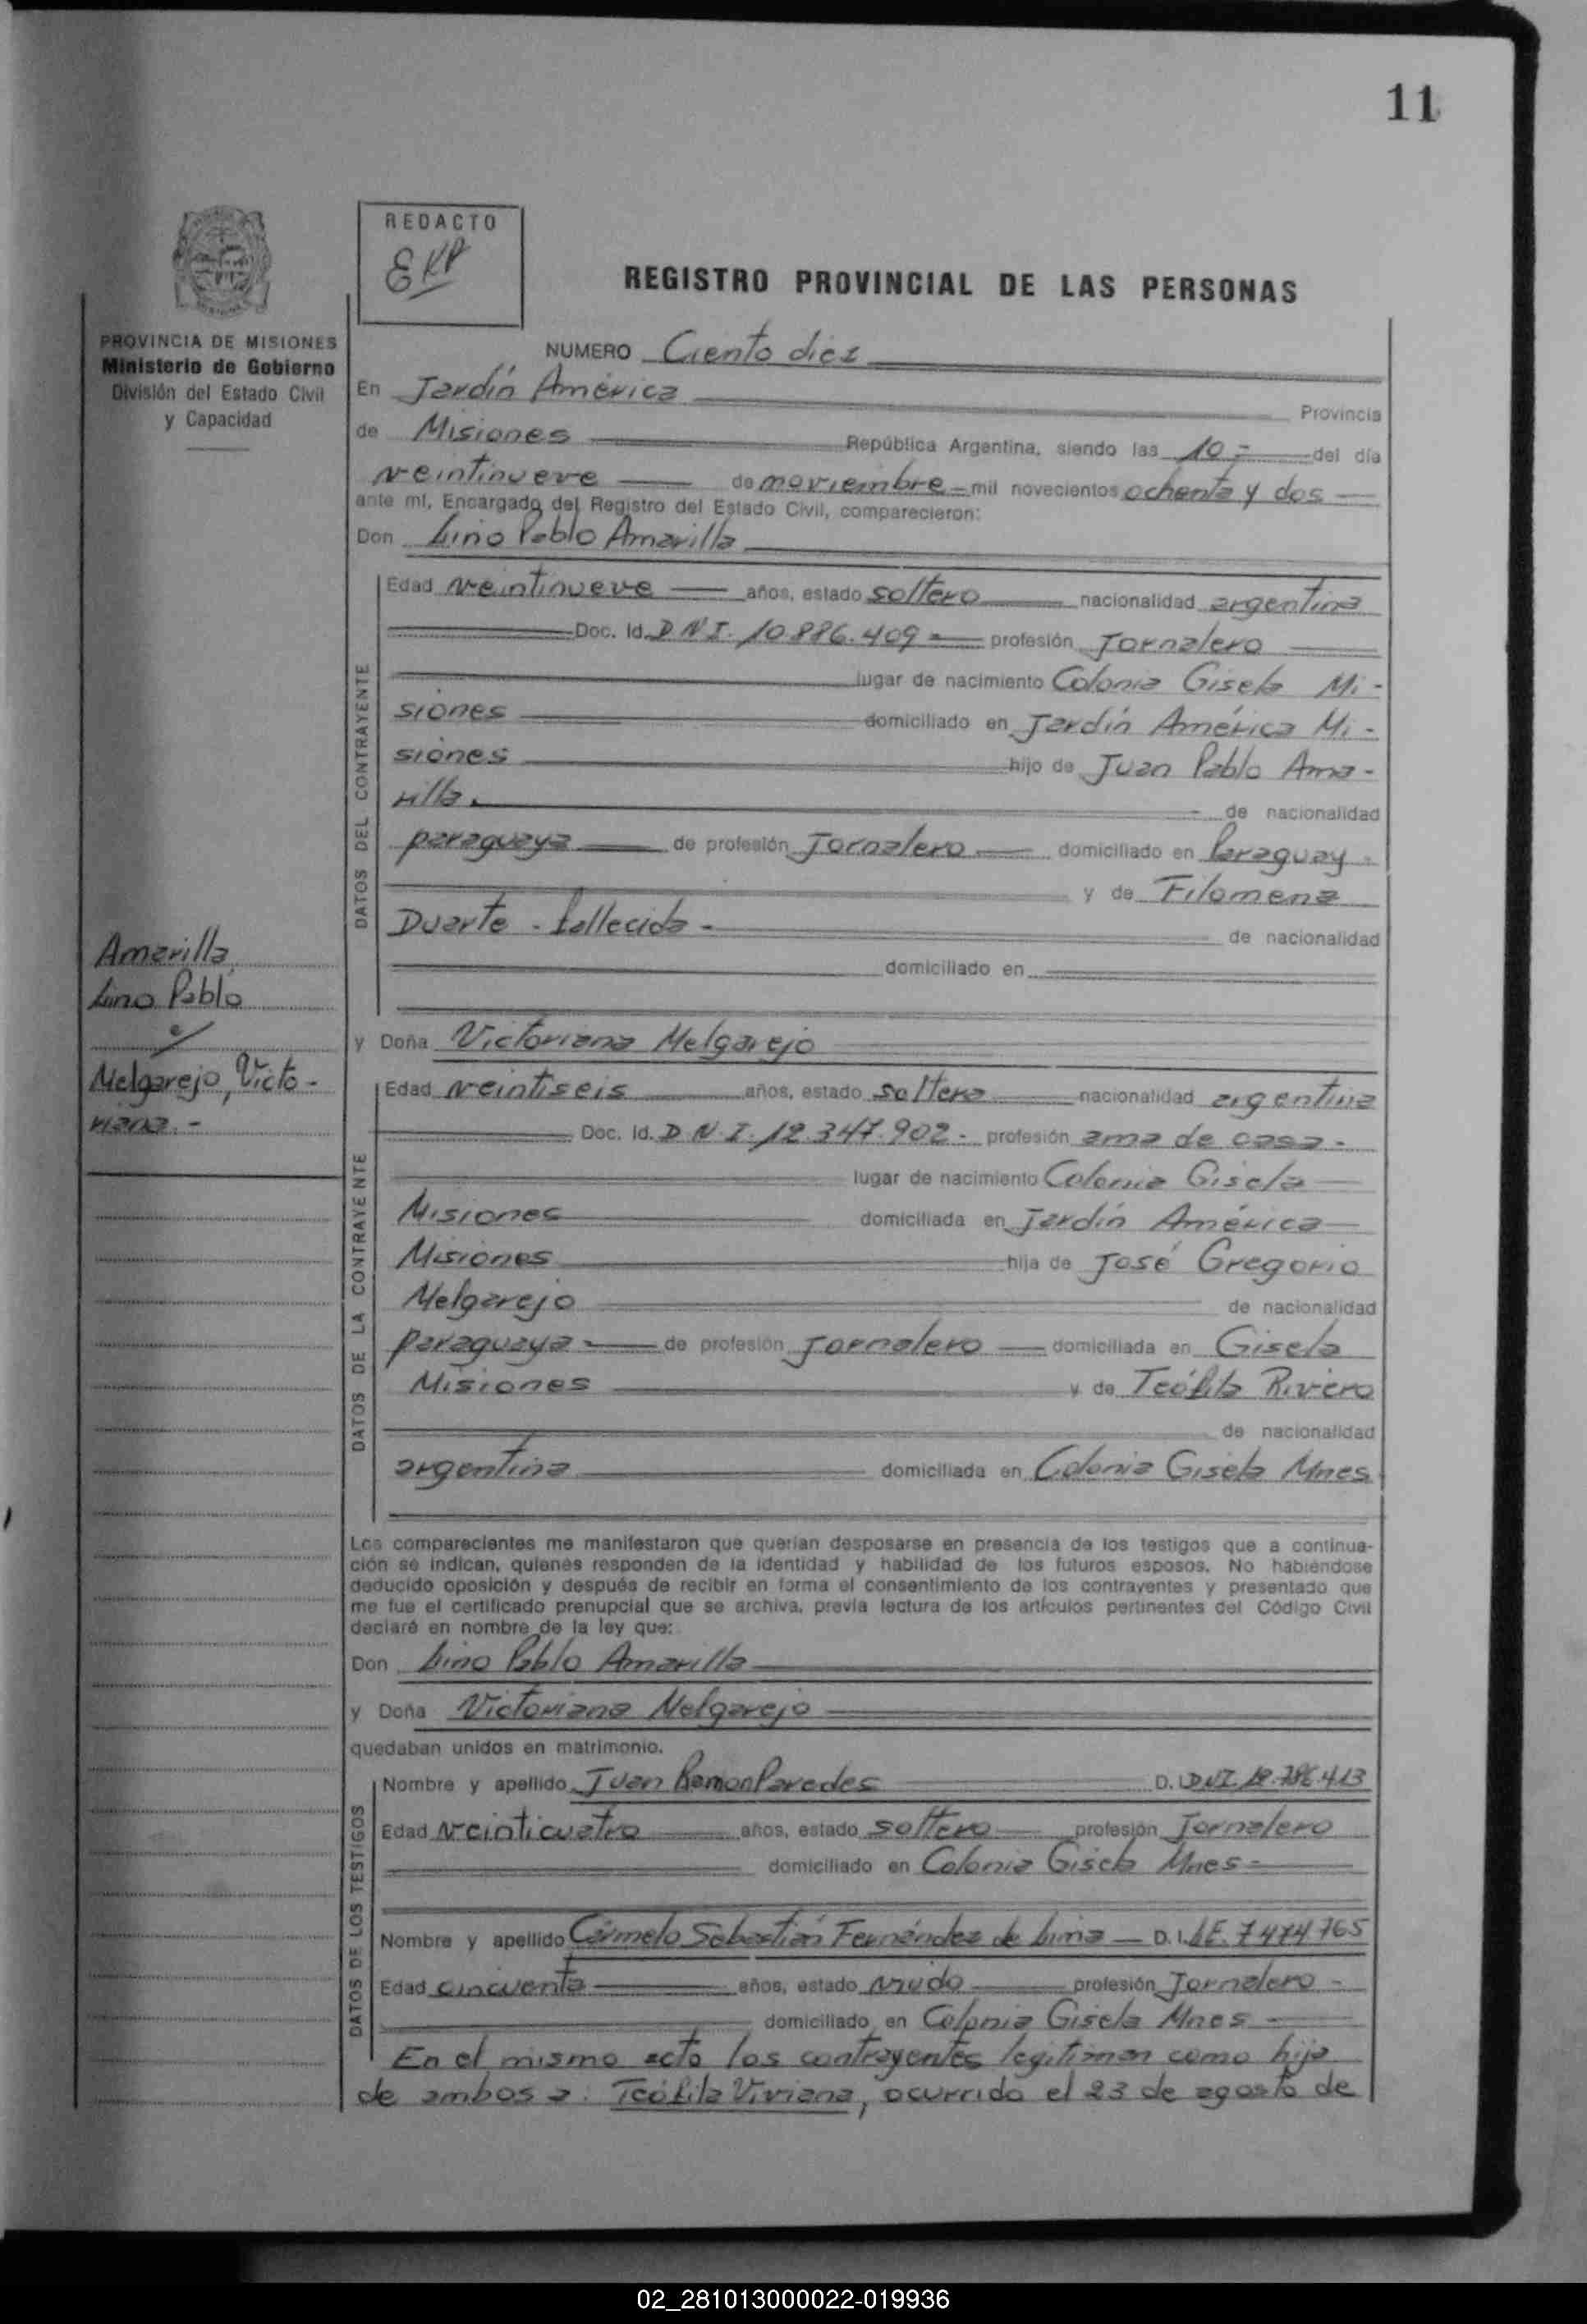 11
REDACTO
REGISTRO PROVINCIAL DE LAS PERSONAS
PROVINCIA DE MISIONES
Ministerio de Gobierno
División del Estado Civil
y Capacidad
NUMERO Ciento diez
En Jardín América Provincia
de Misiones República Argentina, siendo las 10 - del día
veintinueve de noviembre - mil novecientos ochenta y dos
ante mí, Encargado del Registro del Estado Civil, comparecieron:
Don Lino Pablo Amarilla
DATOS DEL CONTRAYENTE
Edad veintinueve años, estado soltero nacionalidad argentina
Doc. Id. D.N.I. 10.886.409 - profesión Jornalero
lugar de nacimiento Colonia Gisela Mi-
siones domiciliado en Jardín América Mi-
siones hijo de Juan Pablo Ama-
rilla. de nacionalidad
paraguaya de profesión Jornalero domiciliado en Paraguay -
y de Filomena
Duarte - fallecida - de nacionalidad
domiciliado en
Amarilla,
Lino Pablo
c/
Melgarejo, Victo-
riana. -
y Doña Victoriana Melgarejo
DATOS DE LA CONTRAYENTE
Edad veintiseis años, estado soltera nacionalidad argentina
Doc. Id. D.N.I. 12.347.902 - profesión ama de casa -
lugar de nacimiento Colonia Gisela
Misiones domiciliada en Jardín América
Misiones hija de José Gregorio
Melgarejo de nacionalidad
paraguaya de profesión Jornalero domiciliada en Gisela
Misiones y de Teófila Riviero
de nacionalidad
argentina domiciliada en Colonia Gisela Mnes
Los comparecientes me manifestaron que querían desposarse en presencia de los testigos que a continua-
ción se indican, quienes responden de la identidad y habilidad de los futuros esposos. No habiéndose
deducido oposición y después de recibir en forma el consentimiento de los contrayentes y presentado que
me fue el certificado prenupcial que se archiva, previa lectura de los artículos pertinentes del Código Civil
declaré en nombre de la ley que:
Don Lino Pablo Amarilla
y Doña Victoriana Melgarejo
quedaban unidos en matrimonio.
DATOS DE LOS TESTIGOS
Nombre y apellido Juan Ramon Paredes D.I. DNI.
Edad veinticuatro años, estado soltero profesión Jornalero
domiciliado en Colonia Gisela Mnes -
Nombre y apellido Carmelo Sebastián Fernández de Lima D.I. LE. 7474765
Edad cincuenta años, estado viudo profesión Jornalero -
domiciliado en Colonia Gisela Mnes -
En el mismo acto los contrayentes legitiman como hija
de ambos a: Teófila Viviana, ocurrido el 23 de agosto de
02_281013000022-019936